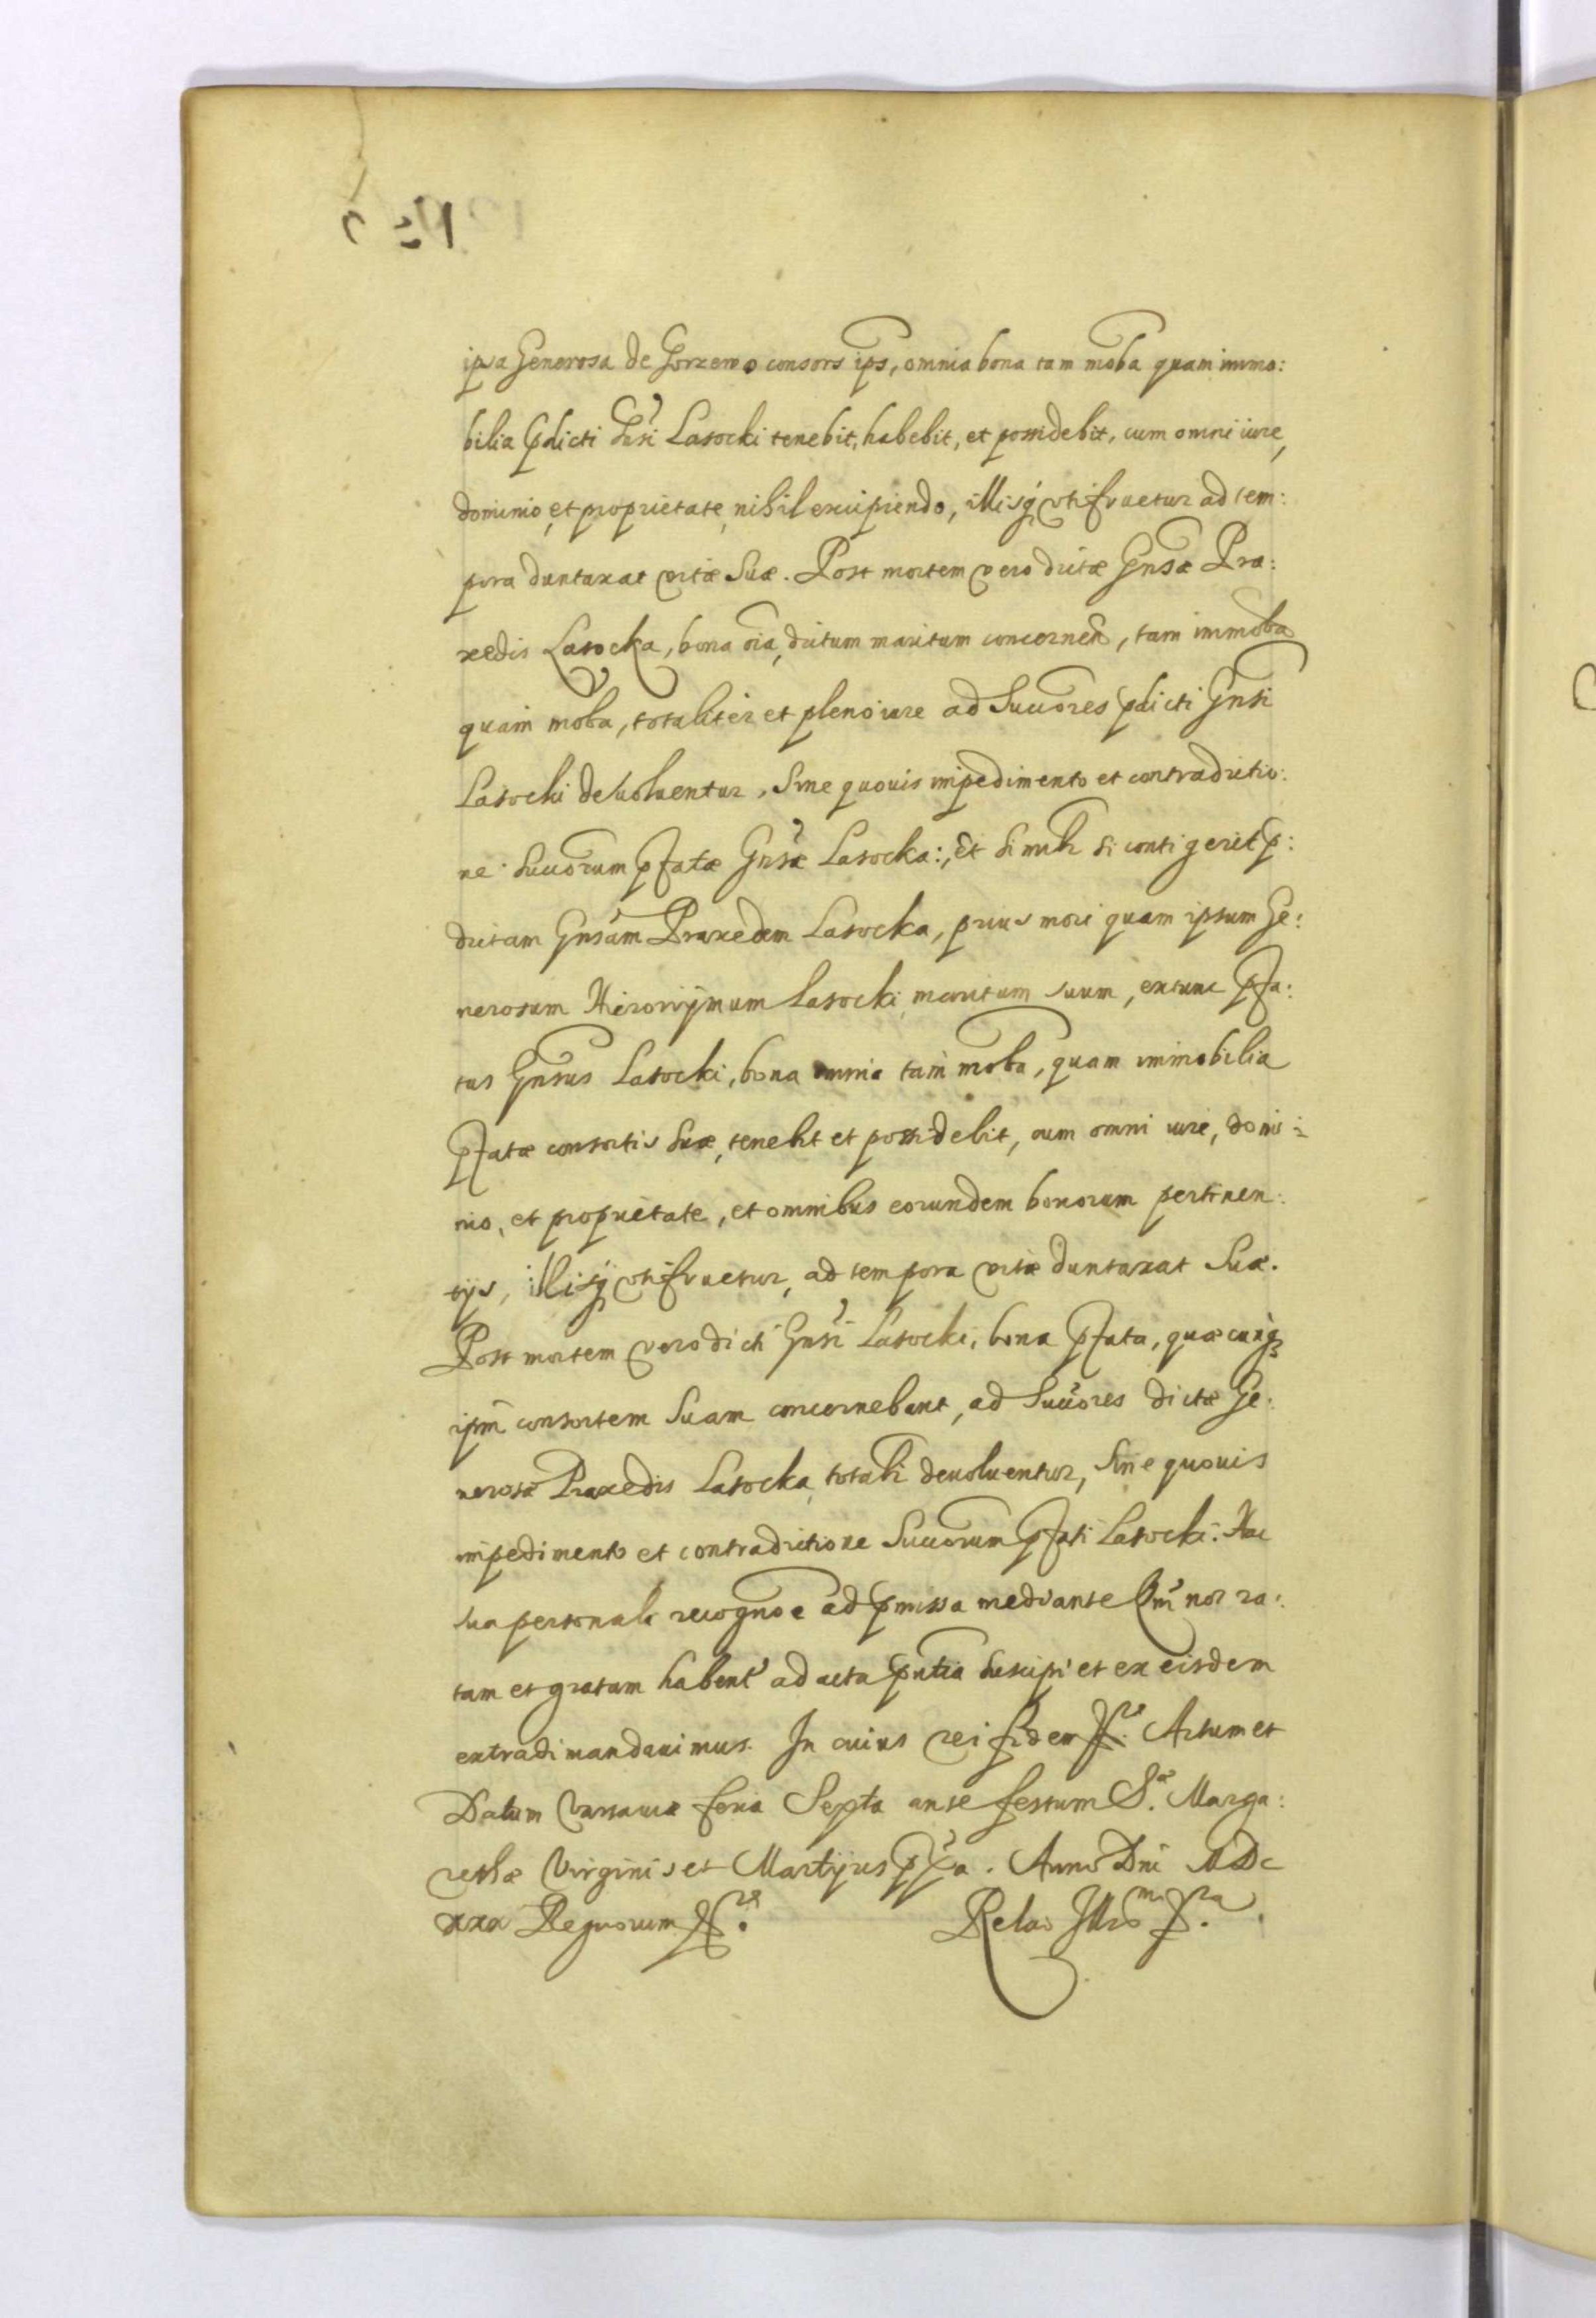 ipsa Generosa de Gorzewo consors ips, omnia bona tam moba quam immo:
bilia pdicti Gnsi Lasocki tenebit, habebit, et possidebit, cum omni iure,
dominio, et proprietate, nihil excipiendo, illisq utifruetur ad tem:
pora duntaxat vitæ Suæ. Post mortem vero dictæ Gnsæ Pra:
xedis Lasocka, bona oia, dictum maritum concernen, tam immoba
quam moba, totaliter et pleno iure ad Succores pdicti Gnsi
Lasocki devoluentur, Sine quouis impedimento et contradictio:
ne Succorum pfatæ Gnsæ Lasocka:, Et Simili Si contigerit p:
dictam Gnsam Praxedem Lasocka, prius mori quam ipsum Ge:
nerosum Hieronymum Lasocki, maritum suum, extunc pfa:
tus Gnsus Lasocki, bona omnia tam moba, quam immobilia
pfatæ consortis Suæ, tenebit et possidebit, cum omni iure, domi:
nio, et proprietate, et omnibus eorundem bonorum pertinen:
tijs, illisq utifruetur, ad tempora vitæ duntaxat Suæ.
Post mortem vero dicti Gnsi Lasocki, bona pfata, quæcunq
ipm consortem Suam concernebant, ad Succores dictæ Ge:
nerosæ Praxedis Lasocka, totali deuoluentur, Sine quouis
impedimento et contradictione Succorum pfati Lasocki. Hac
sua personali recogne ad pmissa mediante Qm nos ra:
tam et gratam habent ad acta pntia Suscipi et ex eisdem
extradi mandauimus. In cuius rei fidem Actum et
Datum Varsauiæ feria Sexta ante festum S. Marga:
rethæ Virginis et Martyris pxa. Anno Dni MDc
xxx Regnorum Relao Illrs